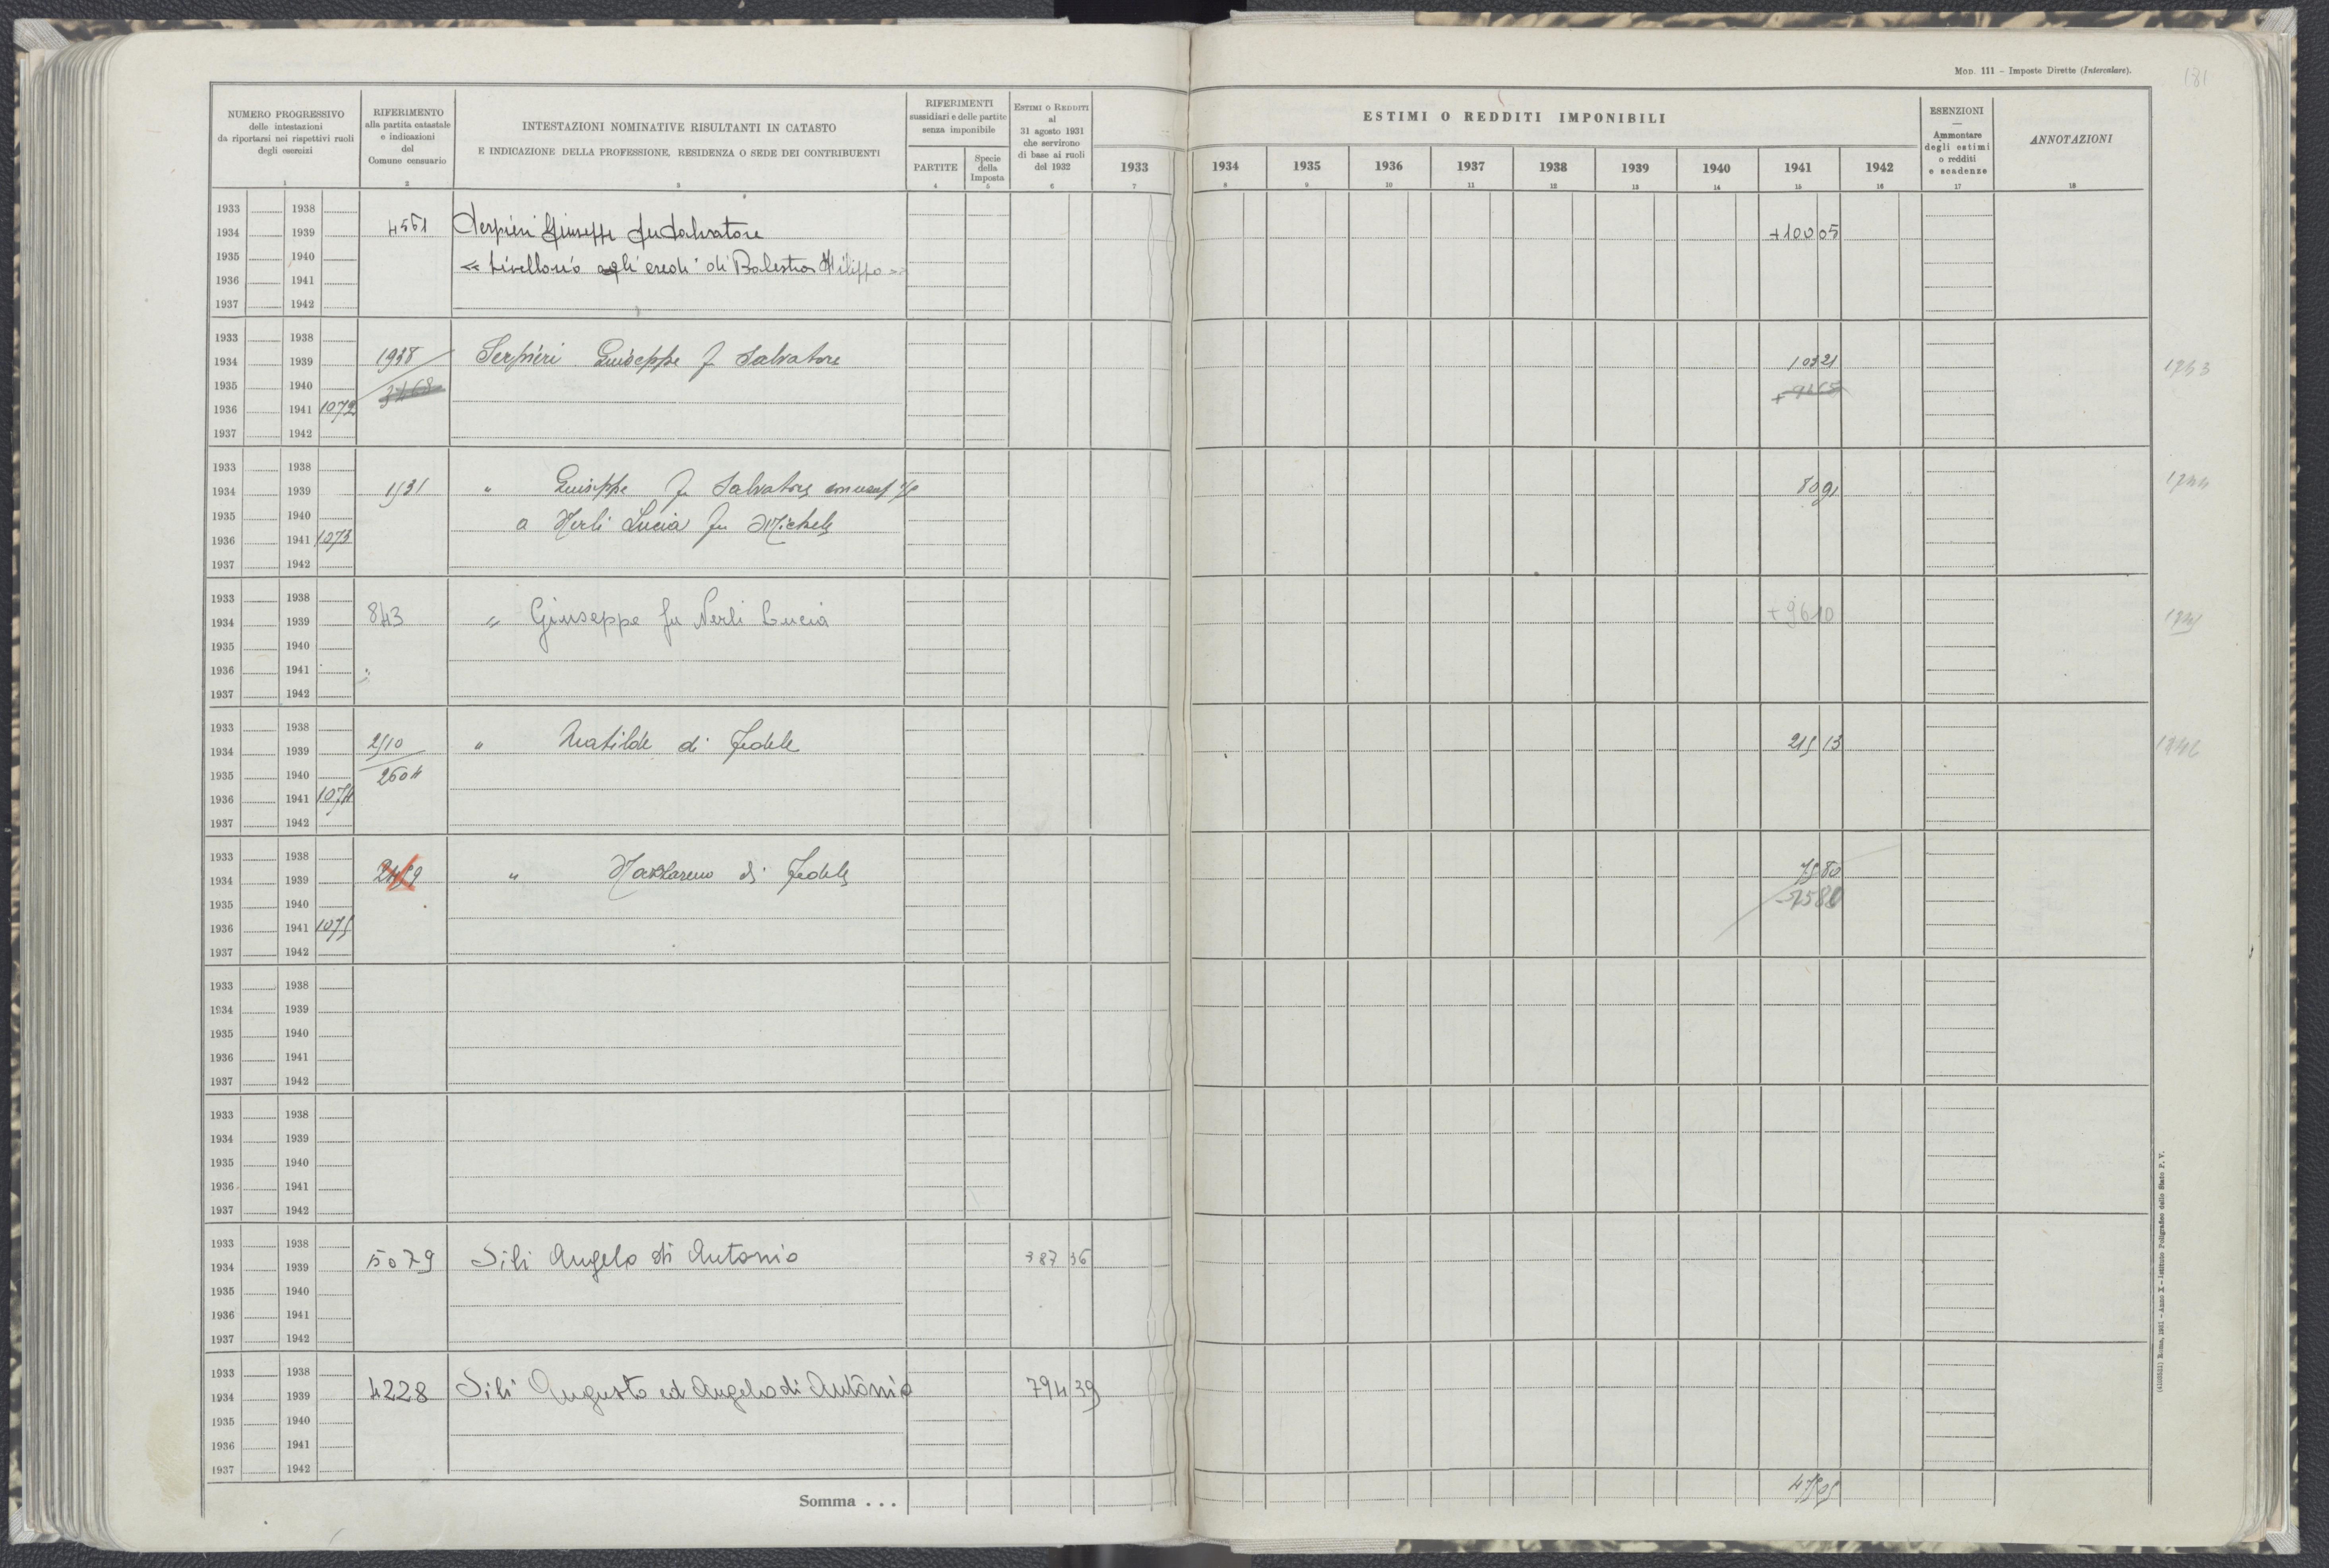 Mod. 111 – Imposte Dirette (Intercalare).
181
NUMERO PROGRESSIVO
delle intestazioni
da riportarsi nei rispettivi ruoli
degli esercizi
1
RIFERIMENTO
alla partita catastale
e indicazioni
del
Comune censuario
2
INTESTAZIONI NOMINATIVE RISULTANTI IN CATASTO
E INDICAZIONE DELLA PROFESSIONE, RESIDENZA O SEDE DEI CONTRIBUENTI
3
RIFERIMENTI
sussidiari e delle partite
senza imponibile
PARTITE
4
Specie
della
Imposta
5
ESTIMI O REDDITI
al
31 agosto 1931
che servirono
di base ai ruoli
del 1932
6
ESTIMI O REDDITI IMPONIBILI
1933 1934 1935 1936 1937 1938 1939 1940 1941 1942
7 8 9 10 11 12 13 14 15 16
ESENZIONI
—
Ammontare
degli estimi
o redditi
e scadenze
17
ANNOTAZIONI
18
1933 1938
1934 1939 4561 Serpieri Giuseppe fu Salvatore +100 05
1935 1940 « livellario agli eredi di Balestra Filippo »
1936 1941
1937 1942
1933 1938
1934 1939 1938 Serpieri Giuseppe fu Salvatore 103 21
1935 1940 3468
1936 1941 1072
1937 1942
1933 1938
1934 1939 1531 " Giuseppe fu Salvatore con usuf
1935 1940 a Nerli Lucia fu Michele
1936 1941 1073
1937 1942
1933 1938
1934 1939 843 " Giuseppe fu Nerli Lucia +96 10
1935 1940
1936 1941
1937 1942
1933 1938
1934 1939 2510 " Matilde di Fedele 215 13
1935 1940 2604
1936 1941 1074
1937 1942 1246
1933 1938
1934 1939 " Nazzareno di Fedele 75 80
1935 1940 75 80
1936 1941 1075
1937 1942
1933 1938
1934 1939
1935 1940
1936 1941
1937 1942
1933 1938
1934 1939
1935 1940
1936 1941
1937 1942
1933 1938
1934 1939 5079 Sili Angelo di Antonio 387 36
1935 1940
1936 1941
1937 1942
1933 1938
1934 1939 4228 Sili Augusto ed Angelo di Antonio 794 39
1935 1940
1936 1941
1937 1942
Somma . . . 475 05
Roma, 1931 – Anno X – Istituto Poligrafico dello Stato P. V.